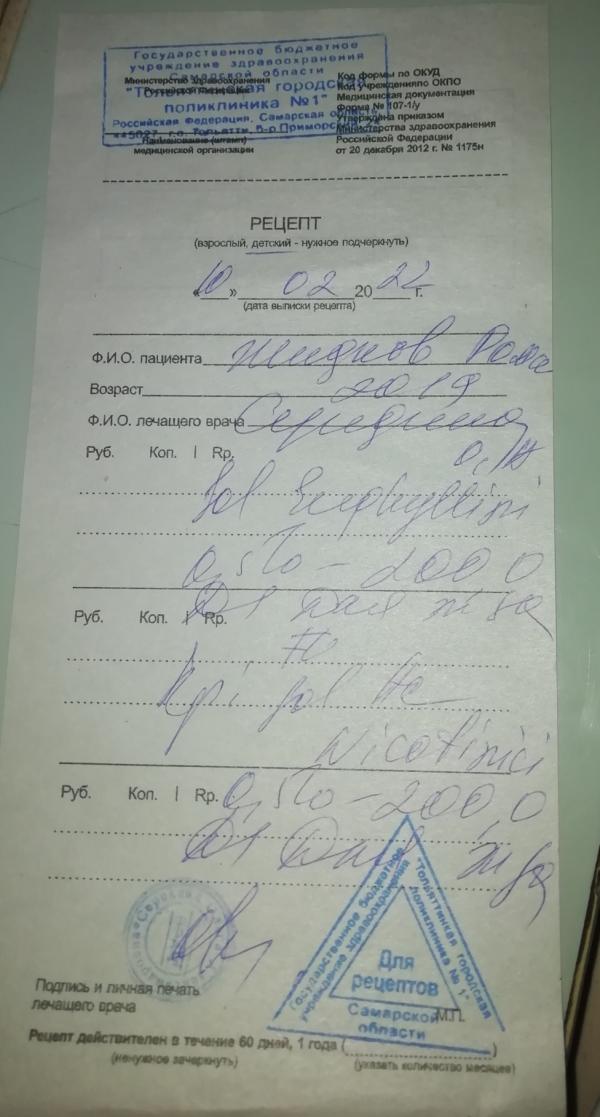 Государственное бюджетное
учреждение здравоохранения
Самарской области
"Тольяттинская городская
поликлиника №1"
Российская Федерация, Самарская область
445027, г.о. Тольятти, б-р Приморский
Министерство здравоохранения
Российской Федерации
Наименование (штамп)
медицинской организации
Код формы по ОКУД
Код учреждения по ОКПО
Медицинская документация
Форма № 107-1/у
Утверждена приказом
Министерства здравоохранения
Российской Федерации
от 20 декабря 2012 г. № 1175н
РЕЦЕПТ
(взрослый, детский - нужное подчеркнуть)
«10» 02 2022 г.
(дата выписки рецепта)
Ф.И.О. пациента Жидков Рома
Возраст 2019
Ф.И.О. лечащего врача Середина
Руб. Коп. | Rp.
Sol Euphyllini
0,5% - 200,0
Руб. Коп. | Rp. DS Для э/ф
Rp: Sol Ac
Nicotinici
Руб. Коп. | Rp. 0,5% - 200,0
DS Для э/ф
Государственное бюджетное
учреждение здравоохранения
"Тольяттинская городская
поликлиника № 1"
Для
рецептов
Самарской
области
Подпись и личная печать
лечащего врача
М.П.
Рецепт действителен в течение 60 дней, 1 года (
)
(ненужное зачеркнуть) (указать количество месяцев)